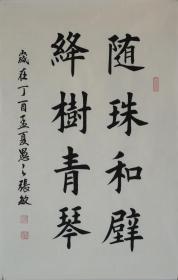 随珠和璧
絳樹青琴
歲在丁酉孟夏愚之張敏